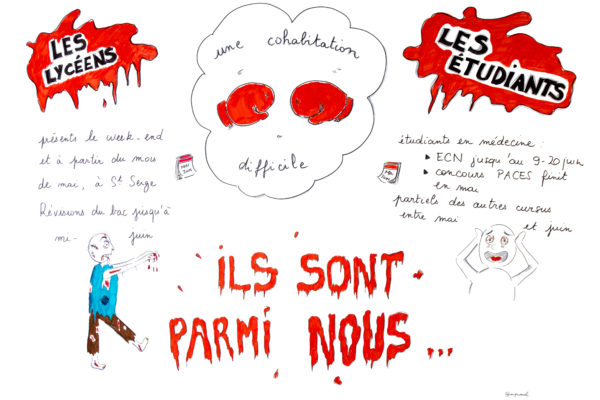 LES
LYCÉENS
une cohabitation
difficile
LES
ÉTUDIANTS
présents le week-end
et à partir du mois
de mai, à St Serge
Révisions du bac jusqu'à
mi- juin
étudiants en médecine :
▸ ECN jusqu'au 9-20 juin
▸ concours PACES finit
en mai
partiels des autres cursus
entre mai et juin
ILS SONT
PARMI NOUS...